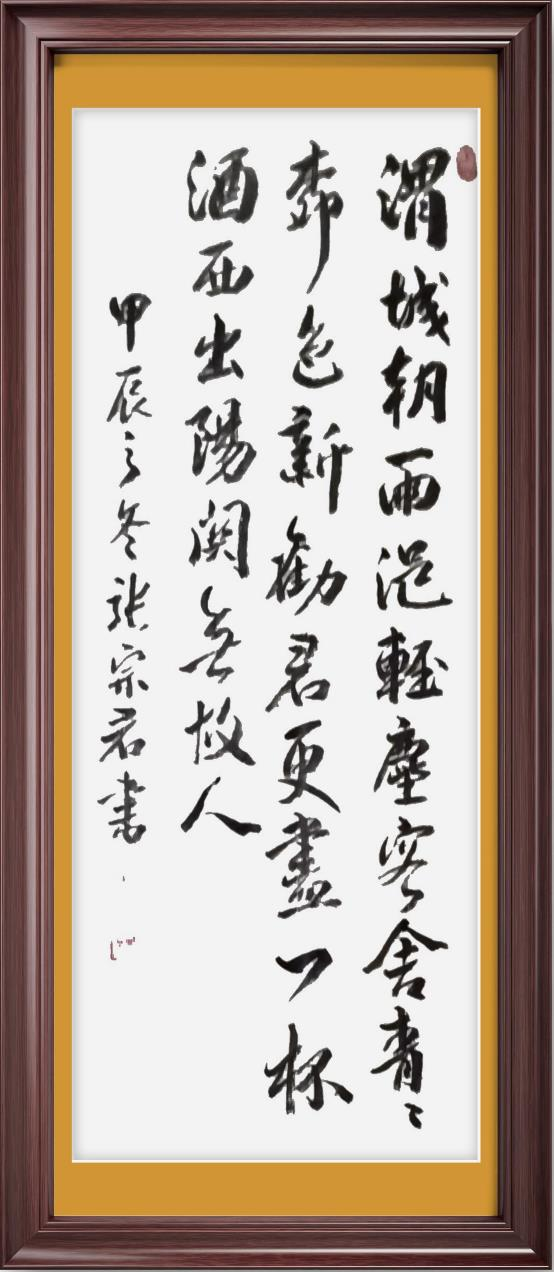 渭城朝雨浥輕塵客舍青々
柳色新勸君更盡一杯
酒西出陽関無故人
甲辰之冬張宗君書